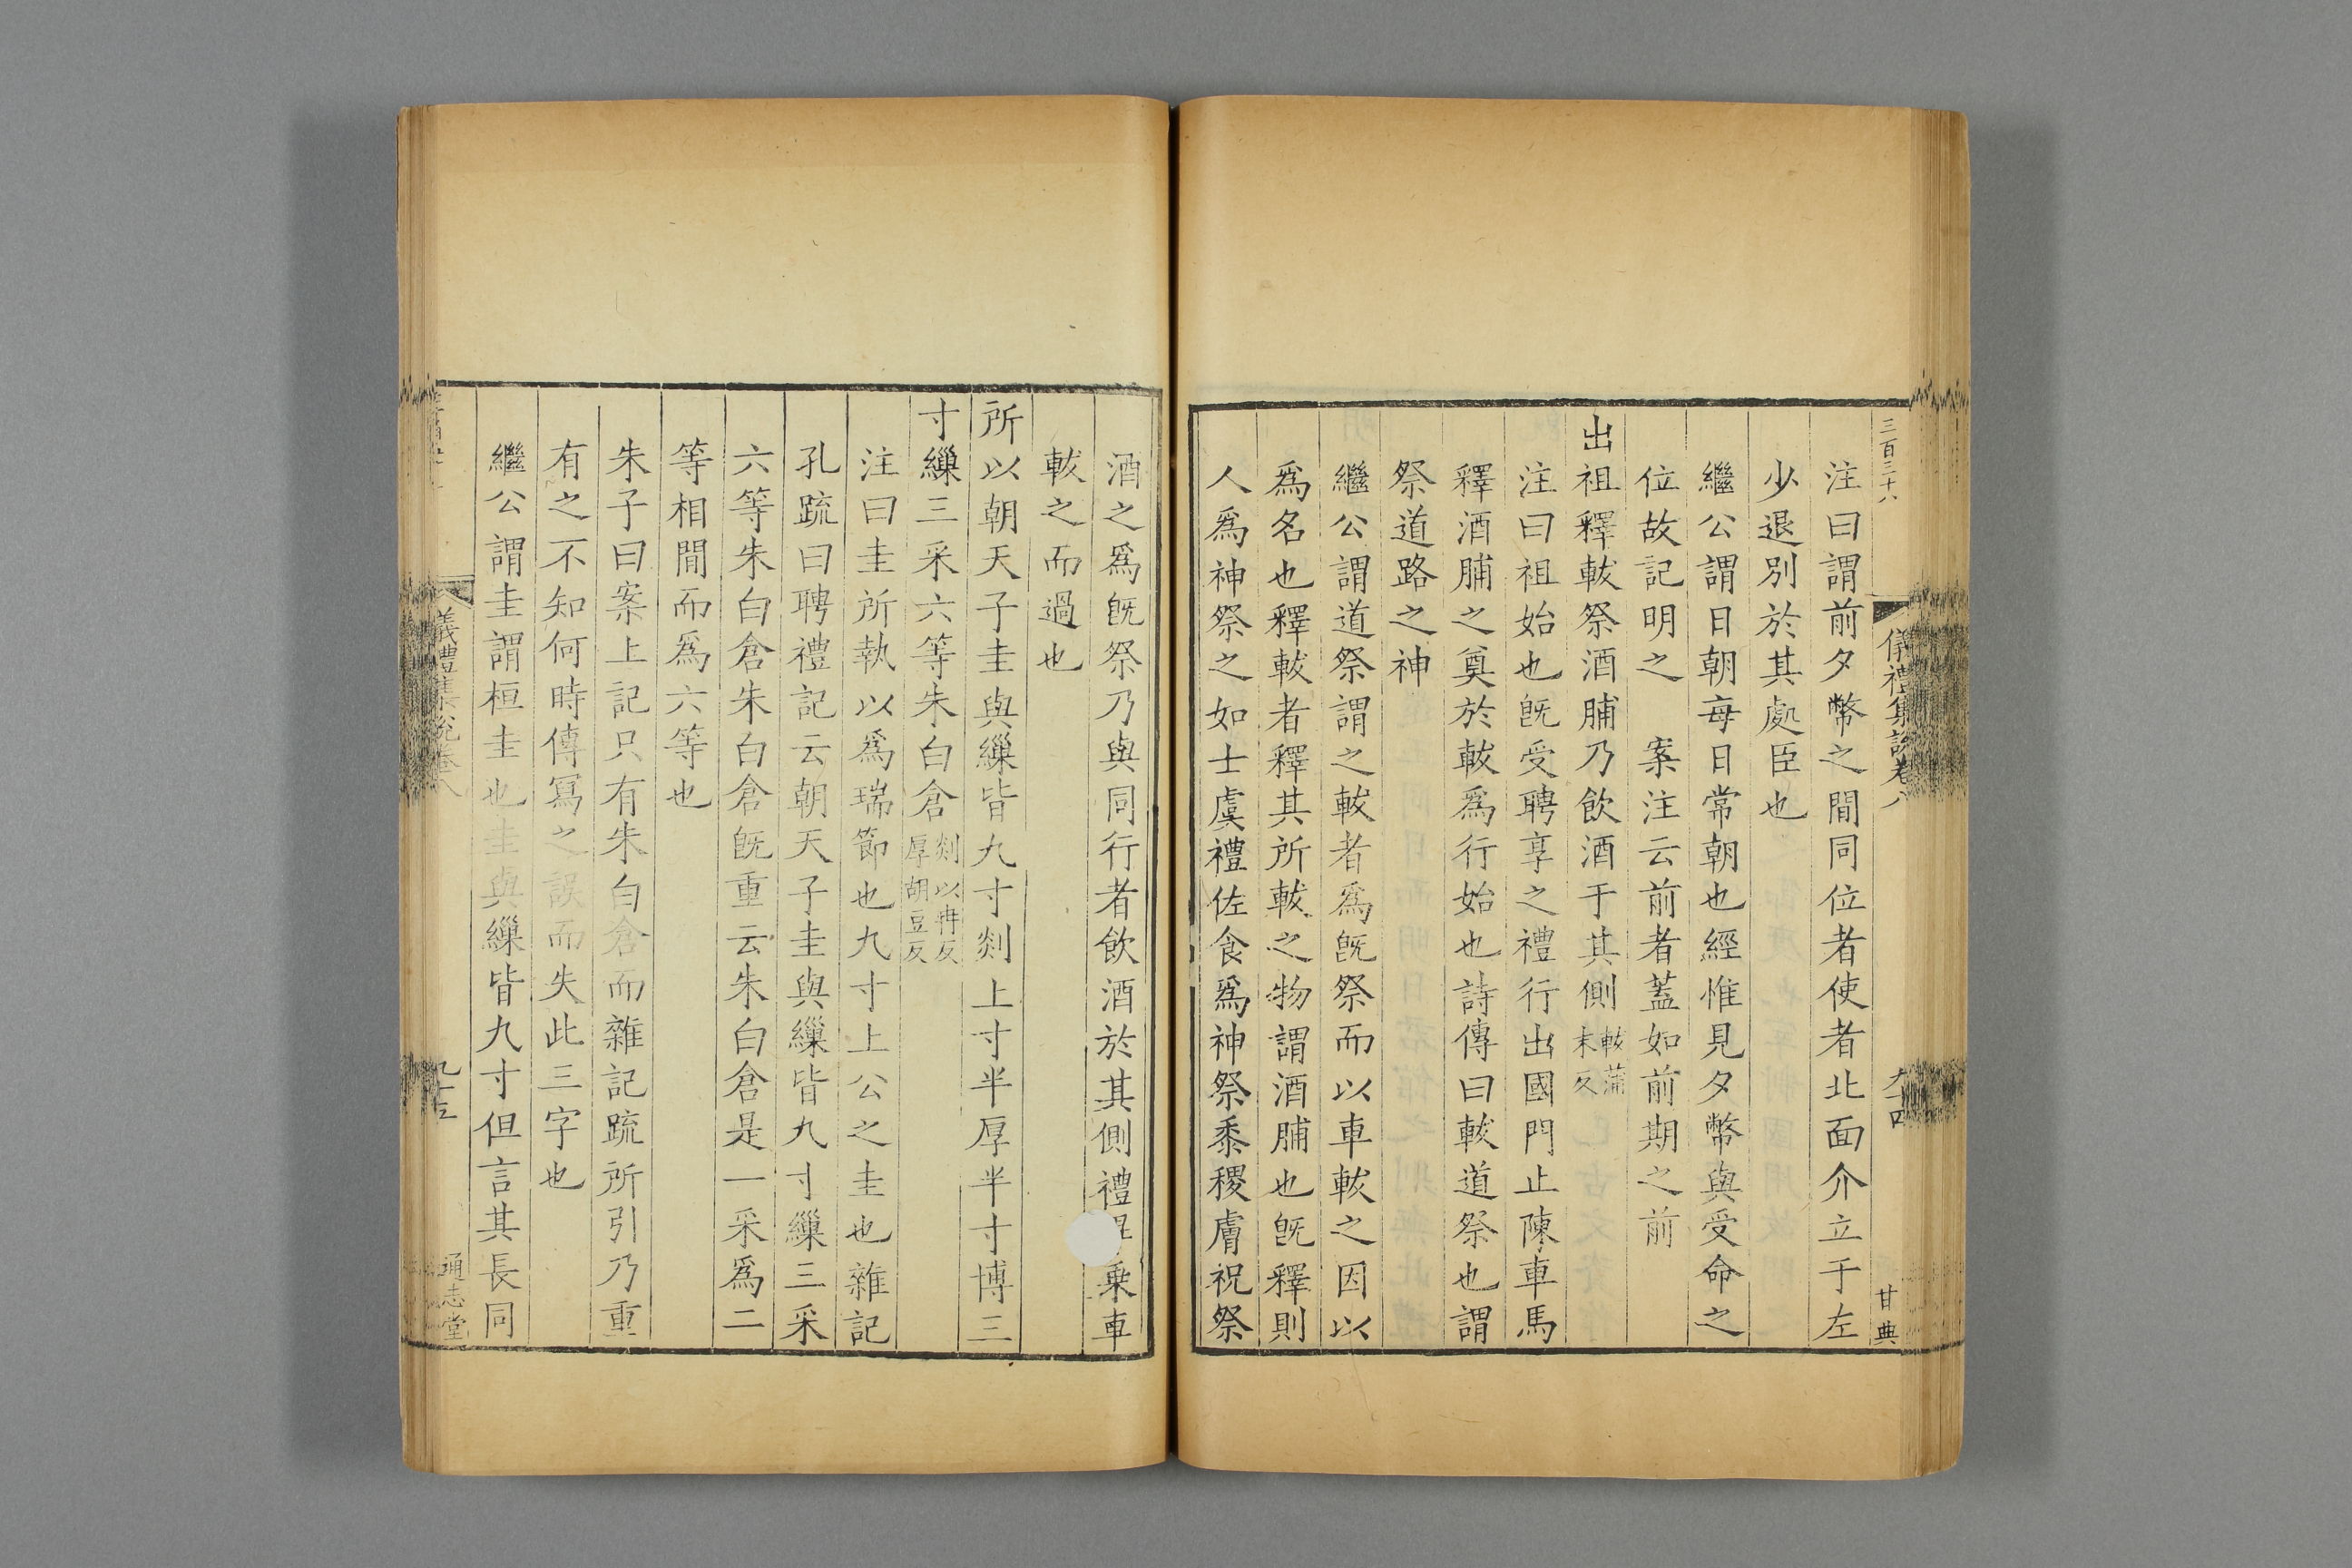 三百三十八
儀禮集說卷八
九十四
甘典
注曰謂前夕幣之間同位者使者北面介立于左
少退別於其處臣也
繼公謂日朝每日常朝也經惟見夕幣與受命之
位故記明之 案注云前者蓋如前期之前
出祖釋軷祭酒脯乃飲酒于其側軷蒲末反
注曰祖始也旣受聘享之禮行出國門止陳車馬
釋酒脯之奠於軷爲行始也詩傳曰軷道祭也謂
祭道路之神
繼公謂道祭謂之軷者爲旣祭而以車軷之因以
爲名也釋軷者釋其所軷之物謂酒脯也旣釋則
人爲神祭之如士虞禮佐食爲神祭黍稷膚祝祭
酒之爲旣祭乃與同行者飲酒於其側禮畢乗車
軷之而過也
所以朝天子圭與繅皆九寸剡上寸半厚半寸博三
寸繅三采六等朱白倉剡以冉反厚胡豆反
注曰圭所執以爲瑞節也九寸上公之圭也雜記
孔疏曰聘禮記云朝天子圭與繅皆九寸繅三采
六等朱白倉朱白倉旣重云朱白倉是一采爲二
等相間而爲六等也
朱子曰案上記只有朱白倉而雜記疏所引乃重
有之不知何時傳寫之誤而失此三字也
繼公謂圭謂桓圭也圭與繅皆九寸但言其長同
儀禮集說卷八
九十五
通志堂